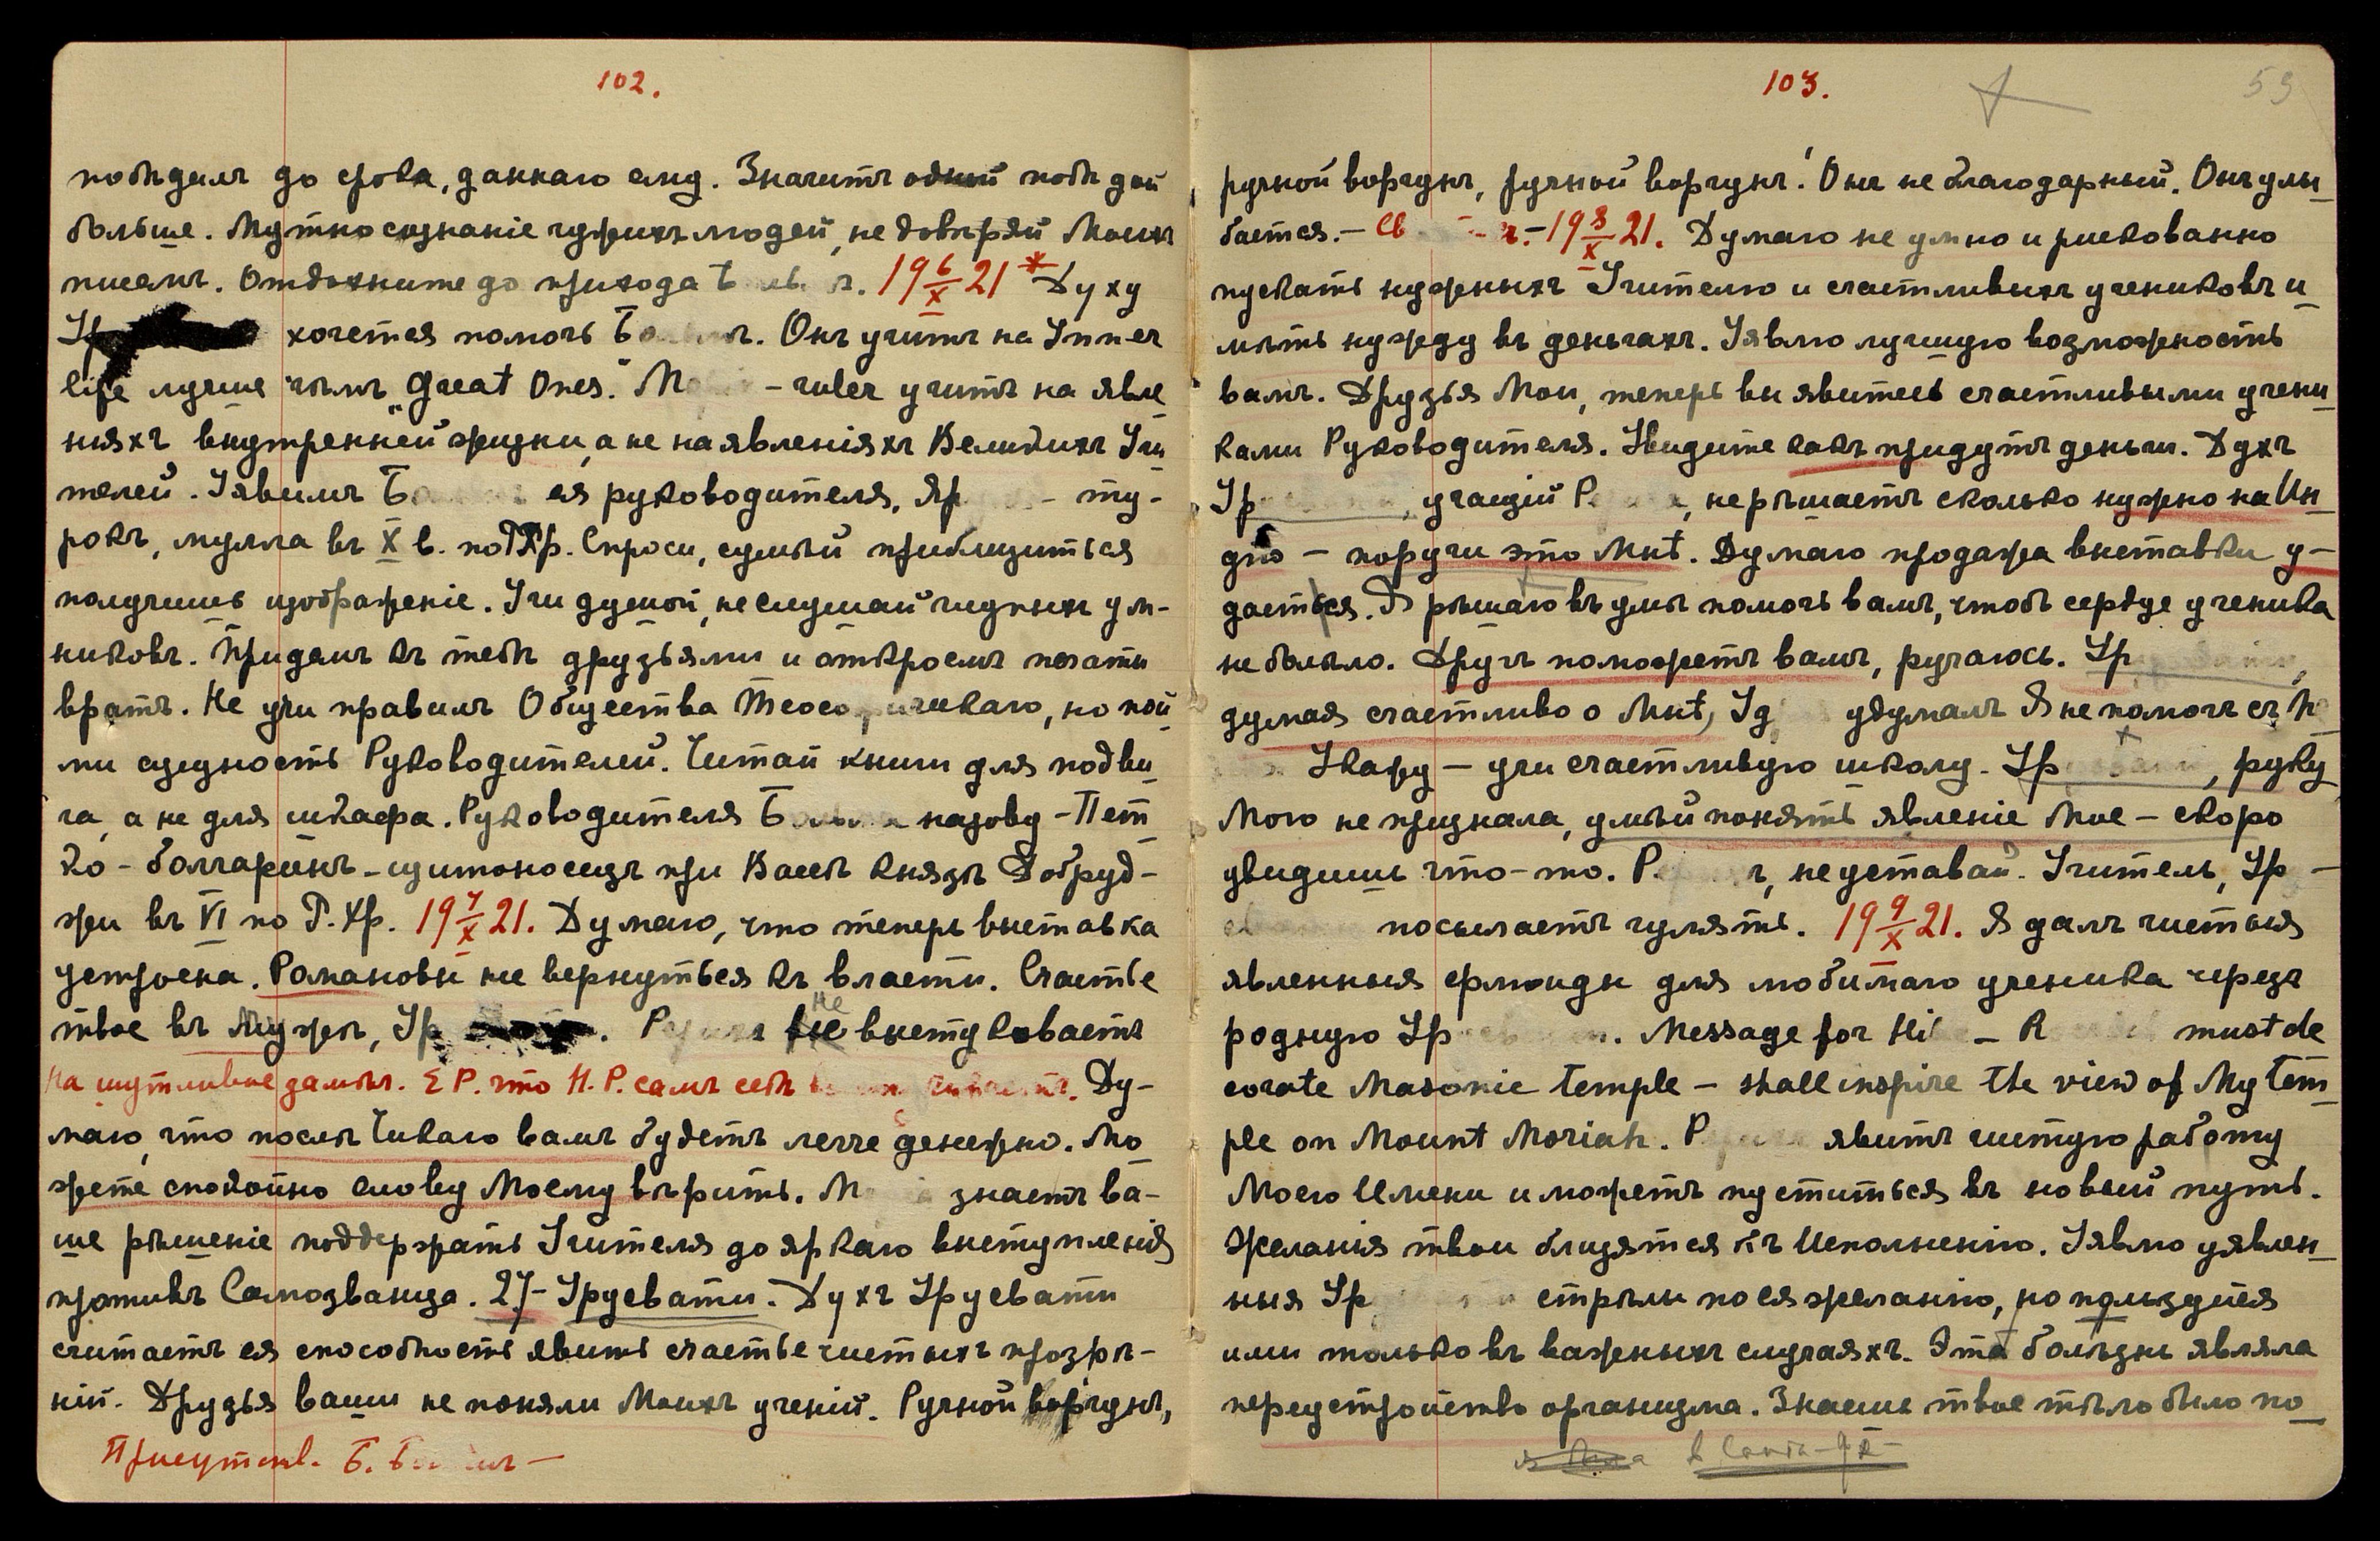 102.
победилъ до срока, даннаго ему. Значитъ одной побѣдой
больше. Мутно сознаніе чужихъ людей, не довѣряй Моихъ
писемъ. Отдохните до прихода 19 6/X 21 * Духу
Ур хочется помочь Б. Онъ учитъ на Inner
life лучше чѣмъ „Great Ones." М - ruler учитъ на явле
ніяхъ внутренней жизни, а не на явленіяхъ Великихъ Учи
телей. Уявимъ Б ея руководителя, Яр - ту-
рокъ, мулла въ X в. по Р. Хр. Спроси, сумѣй приблизиться
получишь изображеніе. Учи душой, не слушай чудныхъ ум-
никовъ. Придемъ къ тебѣ друзьями и откроемъ печати
вратъ. Не учи правилъ Общества Теософическаго, но пой
ми сущность Руководителей. Читай книги для подви
га, а не для шкафа. Руководителя Б назову - Пет
ко - болгаринъ - щитоносецъ при Васѣ князѣ Добруд-
жи въ VI по Р. Хр. 19 7/X 21. Думаю, что теперь выставка
устроена. Романовы не вернуться къ власти. Счастье
твое въ Мужѣ, Ур . Р не выстукиваетъ
на шутливое замѣч. Е Р. что Н. Р. самъ себѣ Ду-
маю, что послѣ Чикаго вамъ будетъ легче денежно. Мо
жете спокойно слову Моему вѣрить. М знаетъ ва-
ше рѣшеніе поддержать Учителя до яркаго выступленія
противъ Самозванца. 27 - Урусвати. Духъ Урусвати
считаетъ ея способность явить счастье чистыхъ прозрѣ-
ній. Друзья ваши не поняли Моихъ ученій. Ручной ворчунъ,
Присутств. Б. Б —
103.
59
ручной ворчунъ, ручной ворчунъ! Онъ не благодарный. Онъ улы
бается. — 19 8/X 21. Думаю не умно и рисковано
пускать нужныхъ Учителю и счастливыхъ учениковъ и
мѣть нужду въ деньгахъ. Уявлю лучшую возможность
вамъ. Друзья Мои, теперь вы явитесь счастливыми учени
ками Руководителя. Увидите какъ придутъ деньги. Духъ
Ур , учащій Р , не рѣшаетъ сколько нужно на Ин
дію - поручи это Мнѣ. Думаю продажа выставки у-
дастся. Я рѣшаю въ умѣ помочь вамъ, чтобъ сердце ученика
не болѣло. Другъ поможетъ вамъ, ручаюсь. Ур ,
думая счастливо о Мнѣ, Уд удумалъ Я не помочь съ
Укажу - учи счастливую школу. Ур , руку
Мою не признала, умѣй понять явленіе Мое - скоро
увидишь что-то. Р , не уставай. Учитель, Ур -
посылаетъ гулять. 19 9/X 21. Я далъ чистыя
явленныя флюиды для любимаго ученика черезъ
родную Ур . Message for Hi - R must de
corate Masonic temple - shall inspire the view of My tem
ple on Mount Moriah. Р явитъ чистую работу
Моего Имени и можетъ пуститься въ новый путь.
Желанія твои близятся къ Исполненію. Уявлю уявлен
ныя Ур стрѣлы по ея желанію, но пользуйся
ими только въ важныхъ случаяхъ. Эта болѣзнь являла
переустройство организма. Знаешь твое тѣло было по